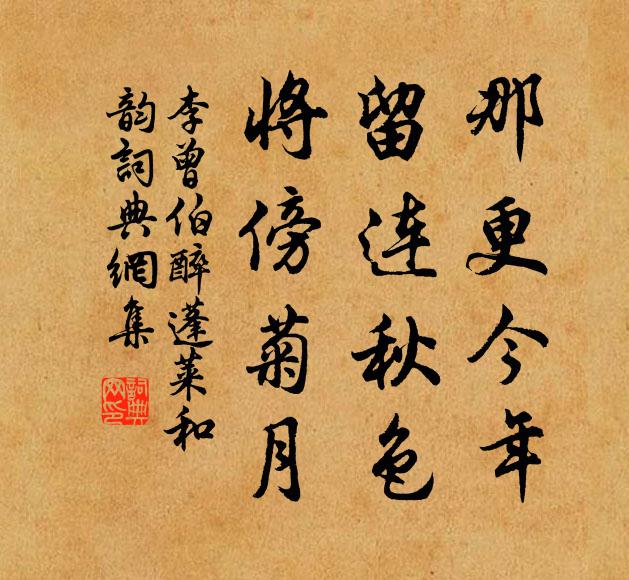 那更今年
留连秋色
将傍菊月
李曾伯醉蓬莱和
韵詞典網集
詞典网印